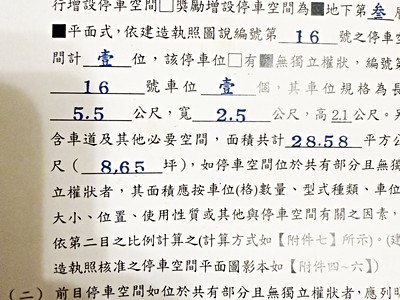 行增設停車空間□獎勵增設停車空間為■地下第叁層
■平面式，依建造執照圖說編號第 16 號之停車空
間計 壹 位，該停車空間□有■無獨立權狀，編號第
16 號車位 壹 個，其車位規格為長
5.5 公尺，寬 2.5 公尺，高2.1公尺。另
含車道及其他必要空間，面積共計28.58平方公
尺（ 8.65 坪），如停車空間位於共有部分且無獨
立權狀者，其面積應按車位(格)數量、型式種類、車位
大小、位置、使用性質或其他與停車空間有關之因素，
依第二目之比例計算之(計算方式如【附件七】所示)。(建
造執照核准之停車空間平面圖影本如【附件四~六】)
(二) 前目停車空間如位於共有部分且無獨立權狀者，應列明